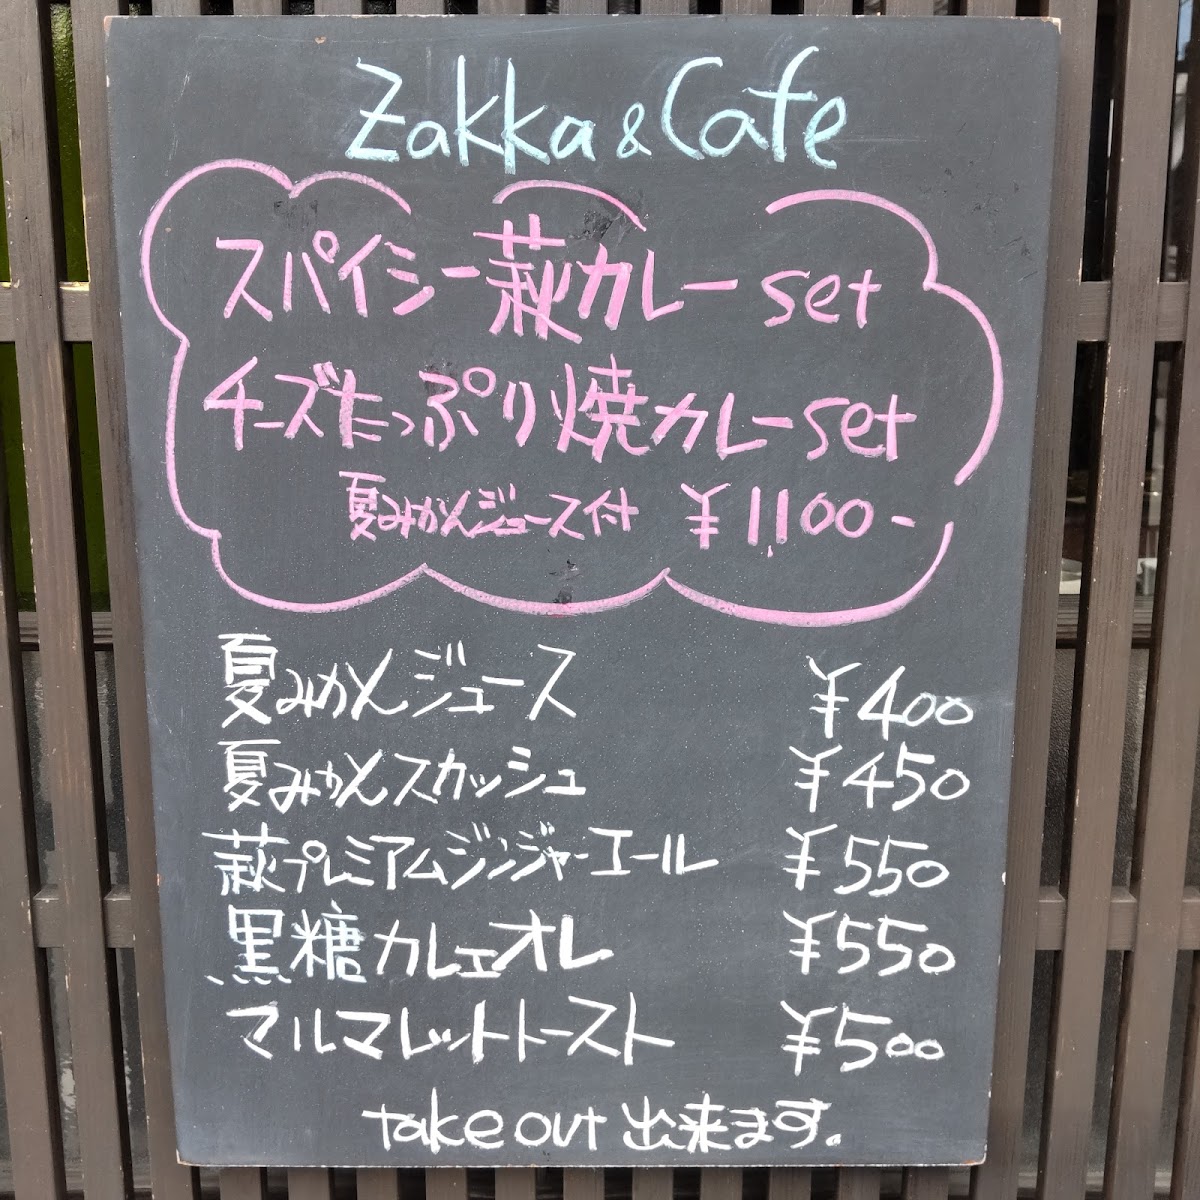 Zakka & Cafe
スパイシー萩カレー set
チーズたっぷり焼カレー set
夏みかんジュース付 ¥1,100-
夏みかんジュース ¥400
夏みかんスカッシュ ¥450
萩プレミアムジンジャーエール ¥550
黒糖カフェオレ ¥550
マルマレットトースト ¥500
take out 出来ます。